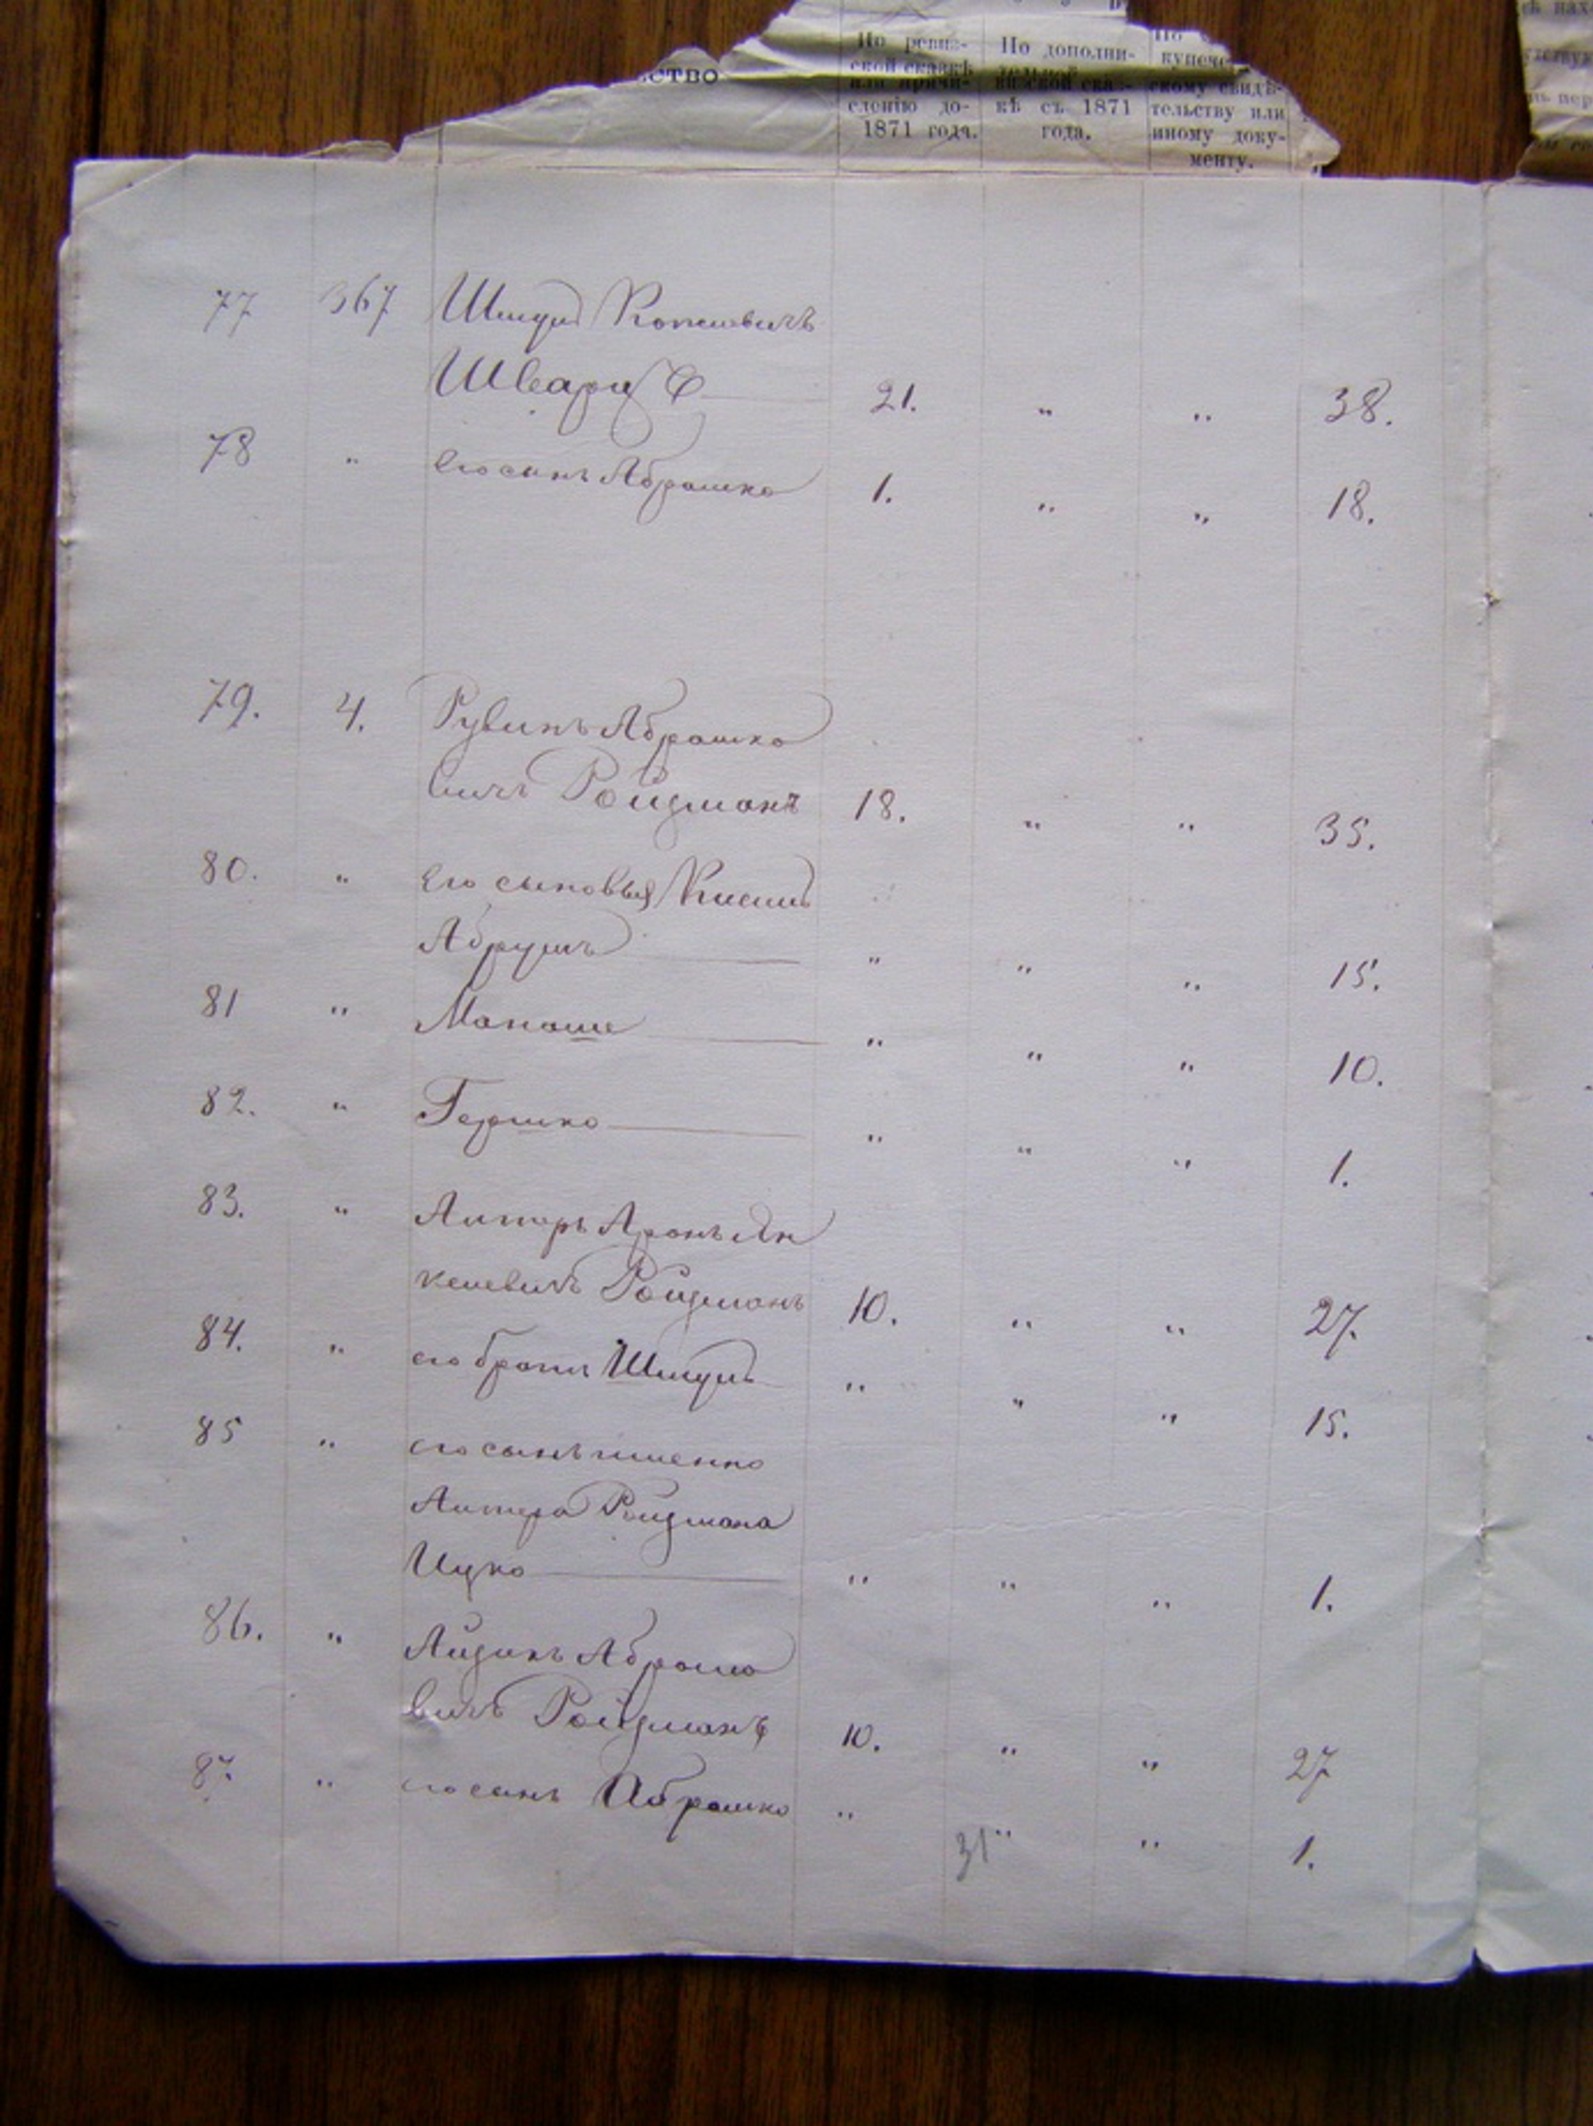 ство
По ревиз-
ской сказкѣ
или причи-
сленію до-
1871 года.
По дополни-
тельной
кѣ съ 1871
года.
По
купече-
скому свидѣ-
тельству или
иному доку-
менту.
77 367 Шмуль
Шварцъ 21. " " 38.
78 " Его сынъ Абрашко 1. " " 18.
79. 4. Рувинъ Абрашко
вичъ Ройдманъ 18. " " 35.
80. " Его сыновья
Абрумъ " " " 15.
81 " Манаше " " " 10.
82. " Гершко " " " 1.
83. " Алтеръ Аронъ Ян
келевичъ Ройдманъ 10. " " 27.
84. " его братъ Шмуль " " " 15.
85 " его сынъ именно
Алтера Ройдмана
Ицко " " " 1.
86. " Айзикъ Абрашко
вичъ Ройдманъ 10. " " 27
87. " его сынъ Абрашко " " " 1.
31